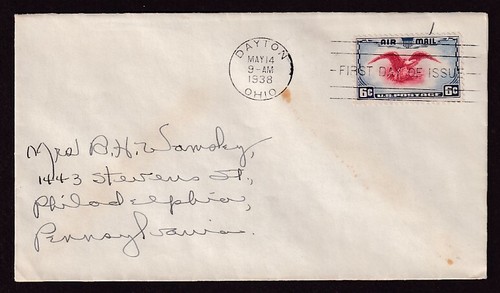 DAYTON
MAY 14
9-AM
1938
OHIO
AIR MAIL
FIRST DAY OF ISSUE
6¢ U.S. POSTAGE 6¢
Mrs B. H. Wamsky,
1443 Stevens St.,
Philadelphia,
Pennsylvania.